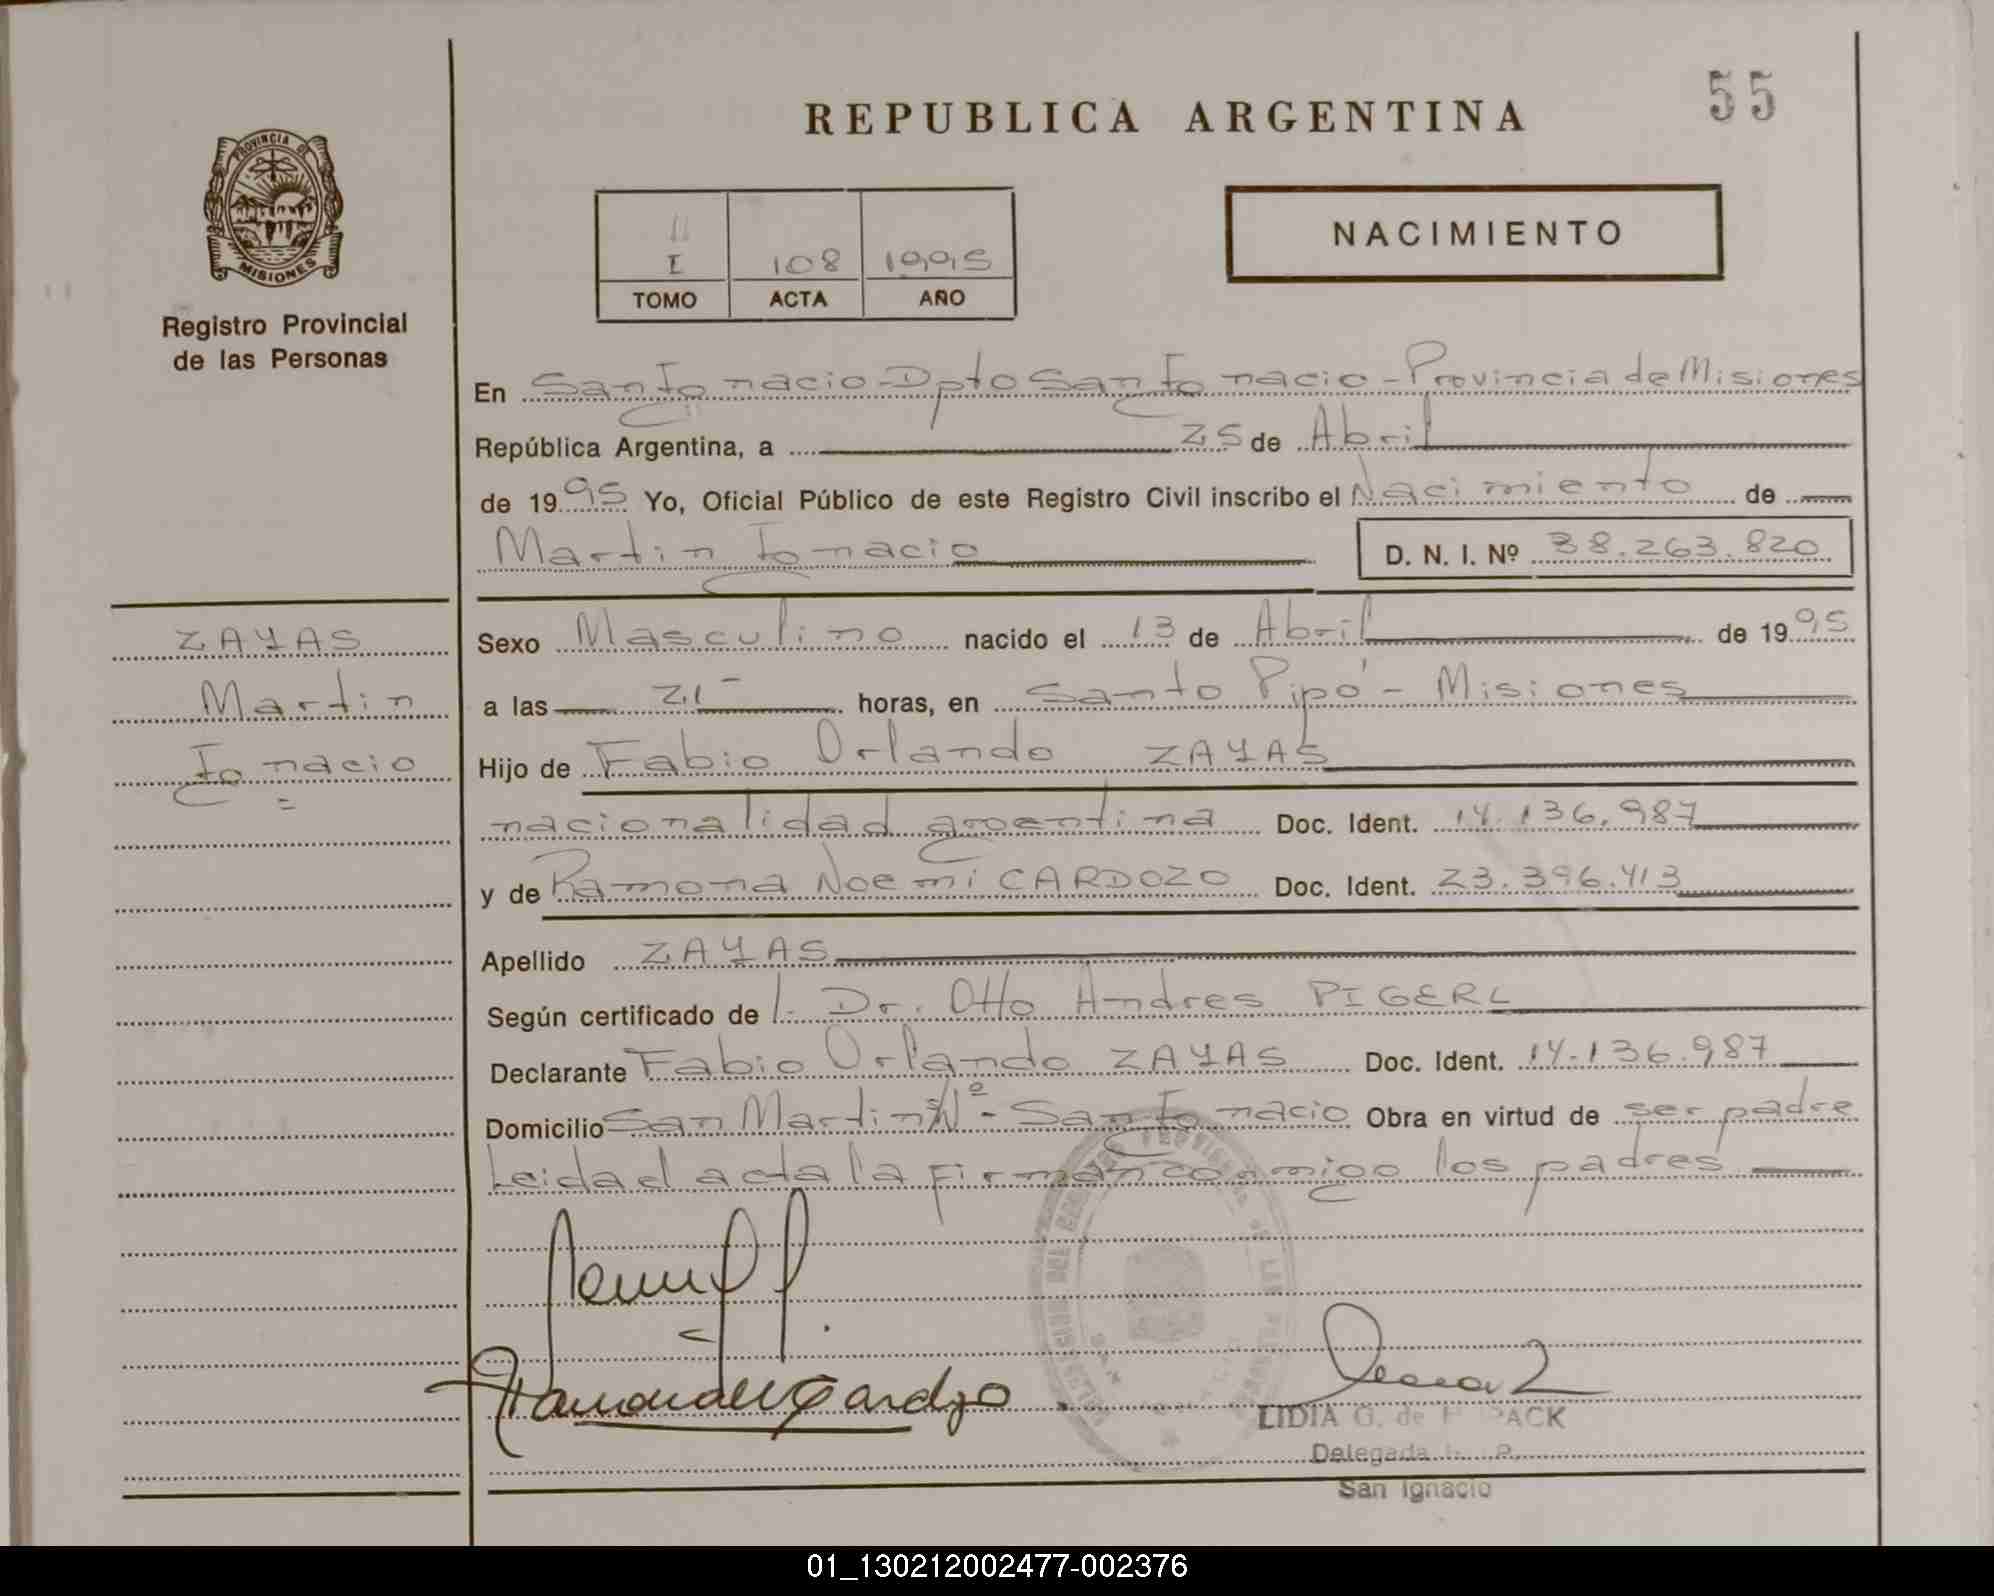 55
REPUBLICA ARGENTINA
PROVINCIA DE
MISIONES
Registro Provincial
de las Personas
II
I 108 1995
TOMO ACTA AÑO
NACIMIENTO
En San Ignacio - Dpto San Ignacio - Provincia de Misiones
República Argentina, a 25 de Abril
de 1995 Yo, Oficial Público de este Registro Civil inscribo el Nacimiento de
Martin Ignacio D. N. I. Nº 38.263.820
ZAYAS
Martin
Ignacio
Sexo Masculino nacido el 13 de Abril de 1995
a las 21 horas, en Santo Pipó - Misiones
Hijo de Fabio Orlando ZAYAS
nacionalidad argentina Doc. Ident. 14.136.987
y de Ramona Noemi CARDOZO Doc. Ident. 23.396.413
Apellido ZAYAS
Según certificado de l. Dr. Otto Andres PIGERL
Declarante Fabio Orlando ZAYAS Doc. Ident. 14.136.987
Domicilio San Martin - San Ignacio Obra en virtud de ser padre
Leida el acta la firman conmigo los padres
LIDIA G. de
Delegada
San Ignacio
01_130212002477-002376